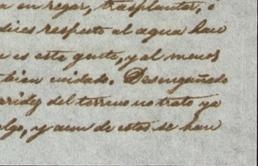 en regar, trasplantar, o
dicas respecto al agua han
n es este gasto, y al menos
bien cuidado. Desengañado
aridez del terreno no trato ya
algo, y aun de estos se han